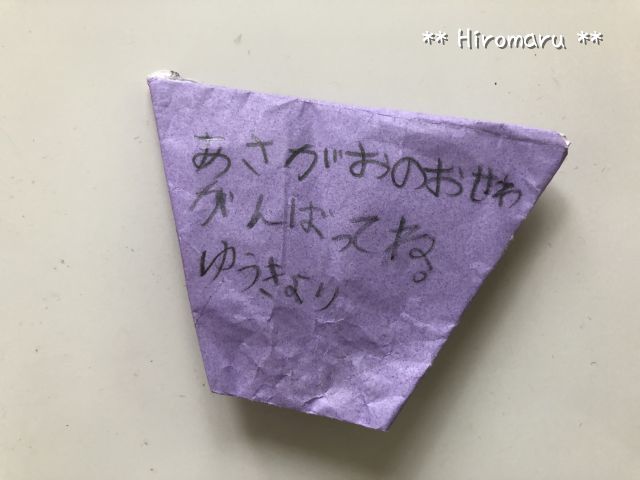 ** Hiromaru **
あさがおのおせわ
がんばってね。
ゆうきより